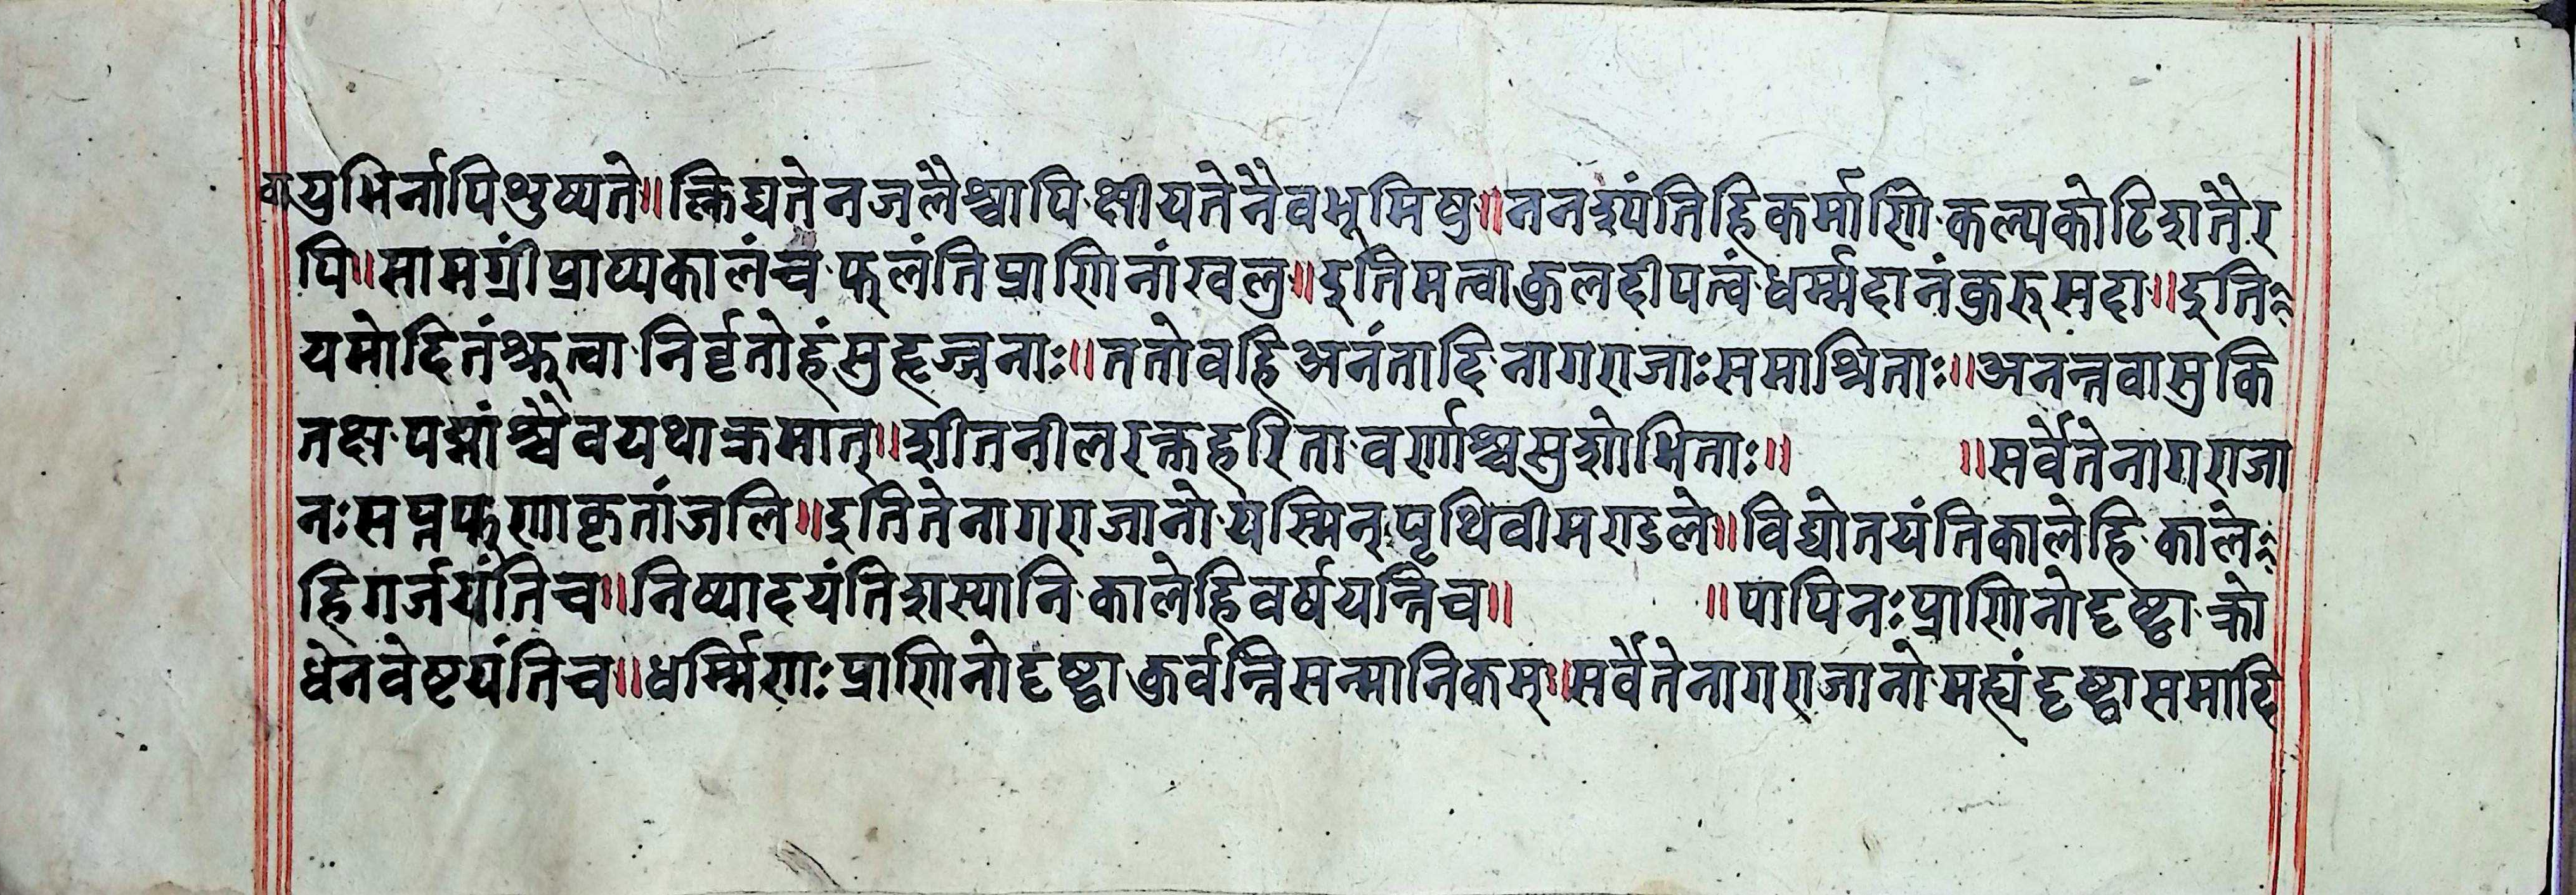 वायुभिर्नापिशुष्यते॥क्लिद्यतेनजलैश्चापिक्षीयतेनैवभूमिषु॥ननश्यंतिहिकर्माणिकल्पकोटिशतैर
पि॥सामग्रींप्राप्यकालंचफलंतिप्राणिनांखलु॥इतिमत्वाकुलद्दीपत्वंधर्म्मदानंकुरुसदा॥इति
यमोदितंश्रुत्वानिर्वृतोहंसुहृज्जनाः॥ततोवहिअनंतादिनागराजाःसमाश्रिताः॥अनन्तवासुकि
तक्षपद्मांश्चैवयथाक्रमात्॥शीतनीलरक्तहरितावर्णाश्चसुशोभिताः॥ ॥सर्वेतेनागराजा
नःसप्तफणाकृतांजलि॥इतितेनागराजानोयस्मिन्पृथिवीमण्डले॥विद्योतयंतिकालेहिकाले
हिगर्जयंतिच॥निष्पादयंतिशस्यानिकालेहिवर्षयन्तिच॥ ॥पापिनःप्राणिनोदृष्ट्वाक्रो
धेनवेष्टयंतिच॥धर्म्मिणःप्राणिनोदृष्ट्वाकुर्वन्तिसन्मानिकम्॥सर्वेतेनागराजानोमह्यंदृष्ट्वासमाहि